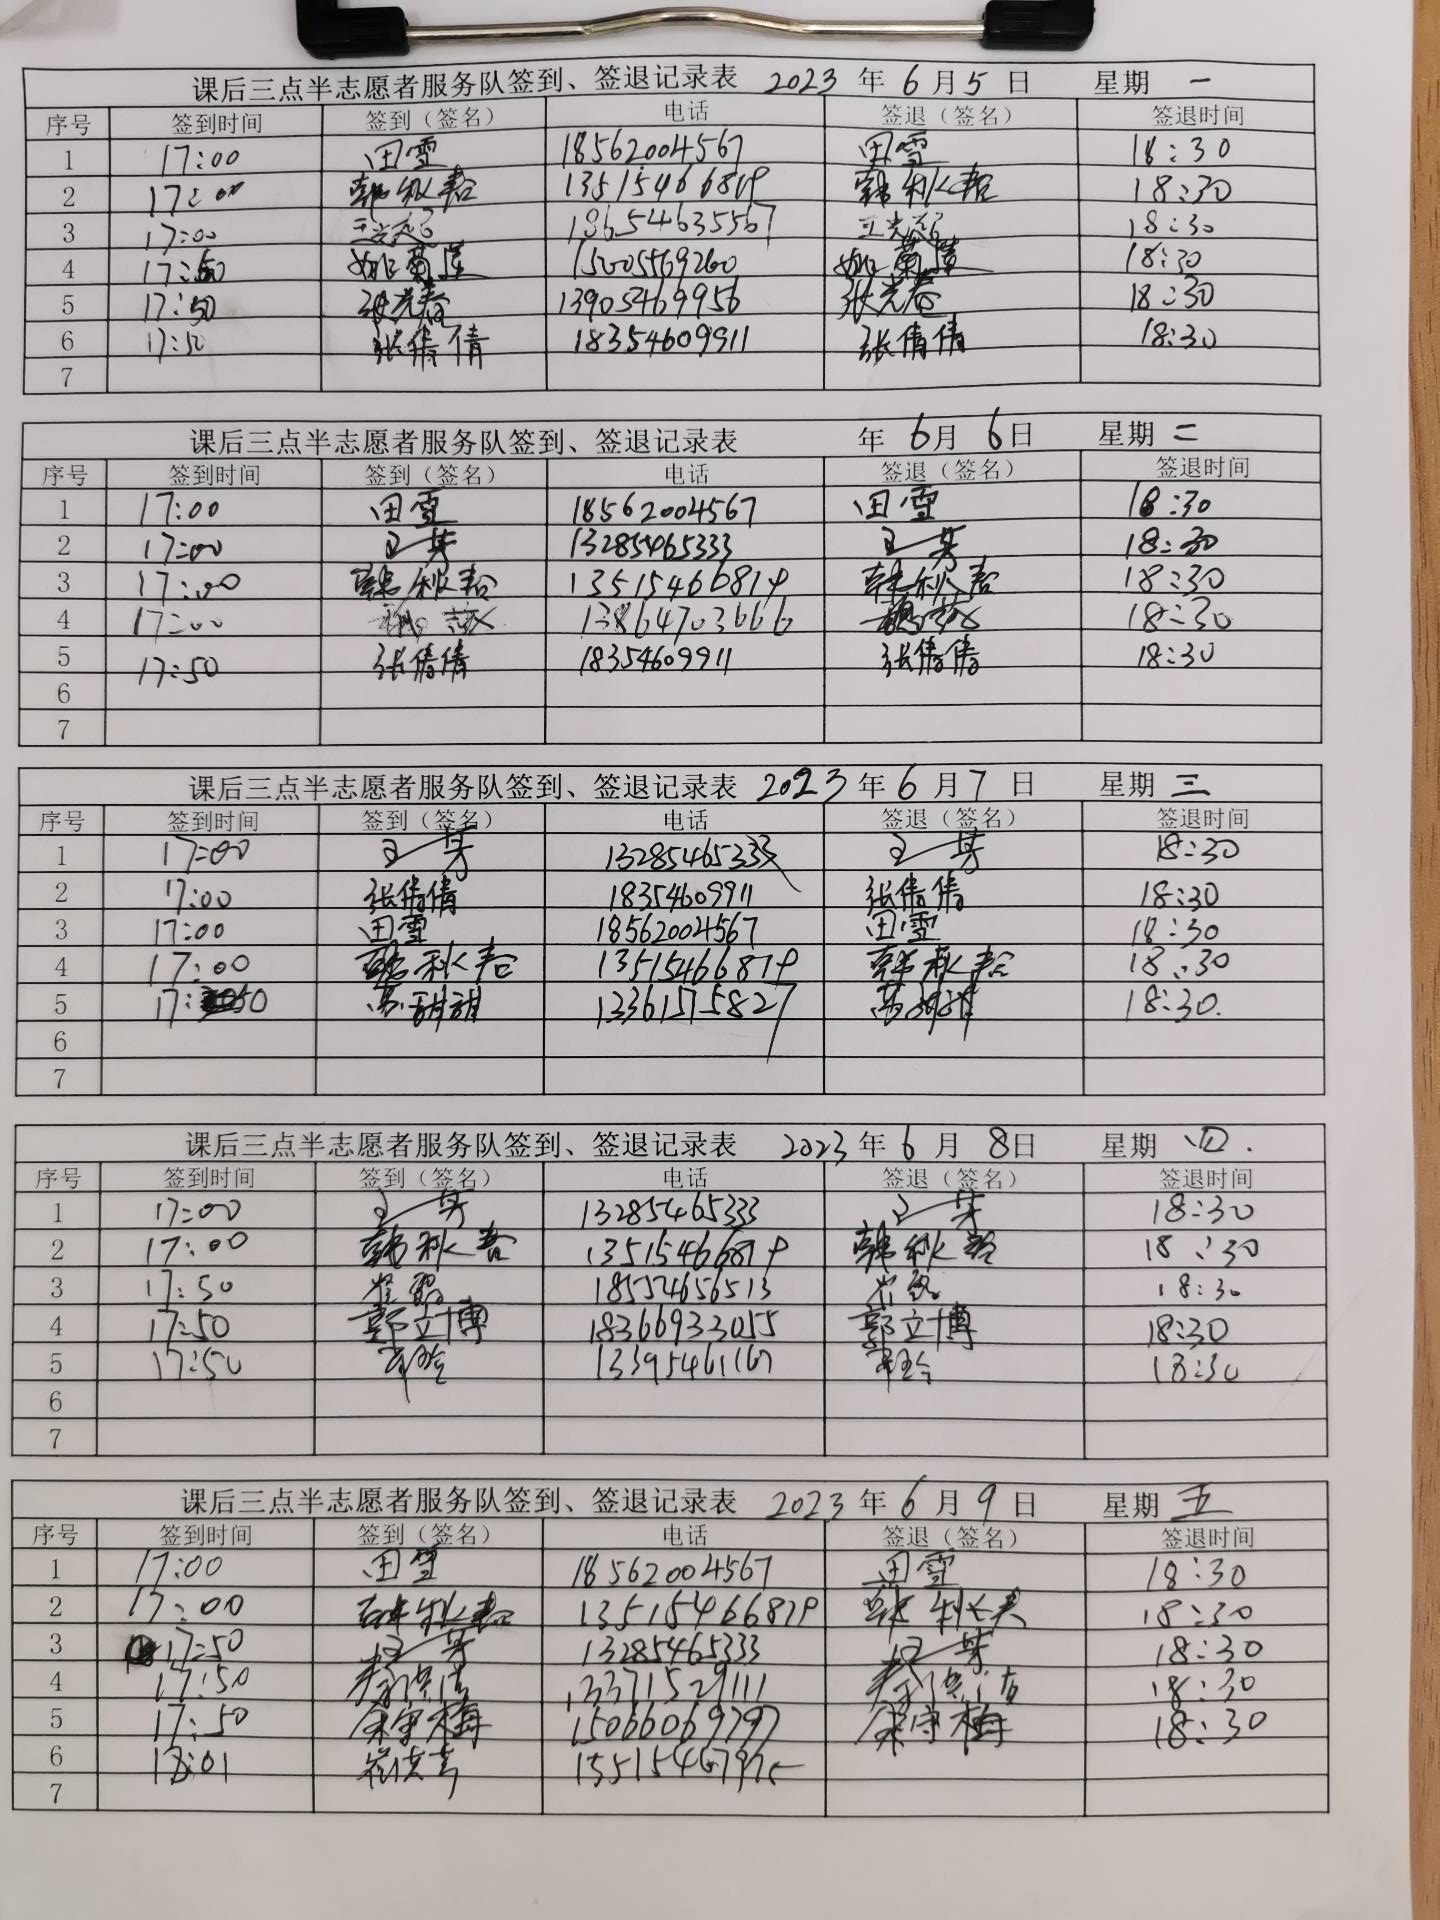 课后三点半志愿者服务队签到、签退记录表 2023 年 6 月 5 日 星期 一
序号 签到时间 签到（签名） 电话 签退（签名） 签退时间
1 17:00 田雪 18562004567 田雪 18:30
2 17:00 韩秋春 13515466819 韩秋春 18:30
3 17:00 18654635567 18:30
4 17:50 姚菊莲 15005469260 姚菊莲 18:30
5 17:50 张光春 13905469956 张光春 18:30
6 17:50 张倩倩 18354609911 张倩倩 18:30
7
课后三点半志愿者服务队签到、签退记录表 年 6月 6日 星期 二
序号 签到时间 签到（签名） 电话 签退（签名） 签退时间
1 17:00 田雪 18562004567 田雪 18:30
2 17:00 王芳 13285465333 王芳 18:30
3 17:00 韩秋春 13515466819 韩秋春 18:30
4 17:00 13864703666 18:30
5 17:50 张倩倩 18354609911 张倩倩 18:30
6
7
课后三点半志愿者服务队签到、签退记录表 2023 年 6 月 7 日 星期 三
序号 签到时间 签到（签名） 电话 签退（签名） 签退时间
1 17:00 王芳 13285465333 王芳 18:30
2 17:00 张倩倩 18354609911 张倩倩 18:30
3 17:00 田雪 18562004567 田雪 18:30
4 17:00 韩秋春 13515466819 韩秋春 18:30
5 17:50 13361515827 18:30.
6
7
课后三点半志愿者服务队签到、签退记录表 2023 年 6 月 8日 星期 四.
序号 签到时间 签到（签名） 电话 签退（签名） 签退时间
1 17:00 王芳 13285465333 王芳 18:30
2 17:00 韩秋春 13515466819 韩秋春 18:30
3 17:50 18554656513 18:30
4 17:50 郭立博 18366933055 郭立博 18:30
5 17:50 13395461167 18:30
6
7
课后三点半志愿者服务队签到、签退记录表 2023 年 6 月 9 日 星期 五
序号 签到时间 签到（签名） 电话 签退（签名） 签退时间
1 17:00 田雪 18562004567 田雪 18:30
2 17:00 韩秋春 13515466819 18:30
3 17:50 王芳 13285465333 王芳 18:30
4 17:50 13371529111 18:30
5 17:50 15066069797 18:30
6 18:01
7